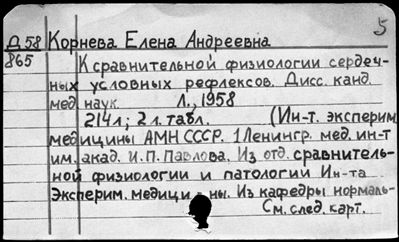 5
Д 58 Корнева Елена Андреевна
865 К сравнительной физиологии сердеч-
ных условных рефлексов. Дисс. канд.
мед. наук. Л., 1958
214 л; 2 л. табл. (Ин-т. эксперим.
медицины АМН СССР. 1 Ленингр. мед. ин-т
им. акад. И.П. Павлова. Из отд. сравнитель-
ной физиологии и патологии Ин-та
Эксперим. медици ны. Из кафедры нормаль-
См. след. карт.